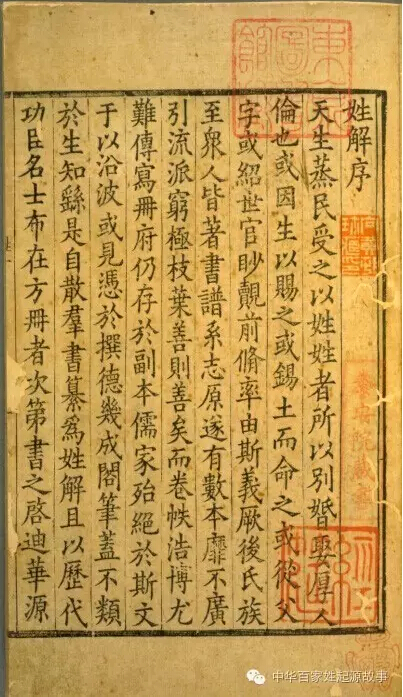 姓解序
天生蒸民受之以姓姓者所以別婚娶厚人
倫也或因生以賜之或錫土而命之或從父
字或紹世官眇覿前脩率由斯義厥後氏族
至衆人皆著書譜系志原遂有數本靡不廣
引流派窮極枝葉善則善矣而卷帙浩博尤
難傳寫冊府仍存於副本儒家殆絕於斯文
于以沿波或見憑於撰德幾成閣筆蓋不類
於生知繇是自散羣書纂爲姓解且以歷代
功臣名士布在方冊者次第書之啓迪華源
養安院藏書
中华百家姓起源故事